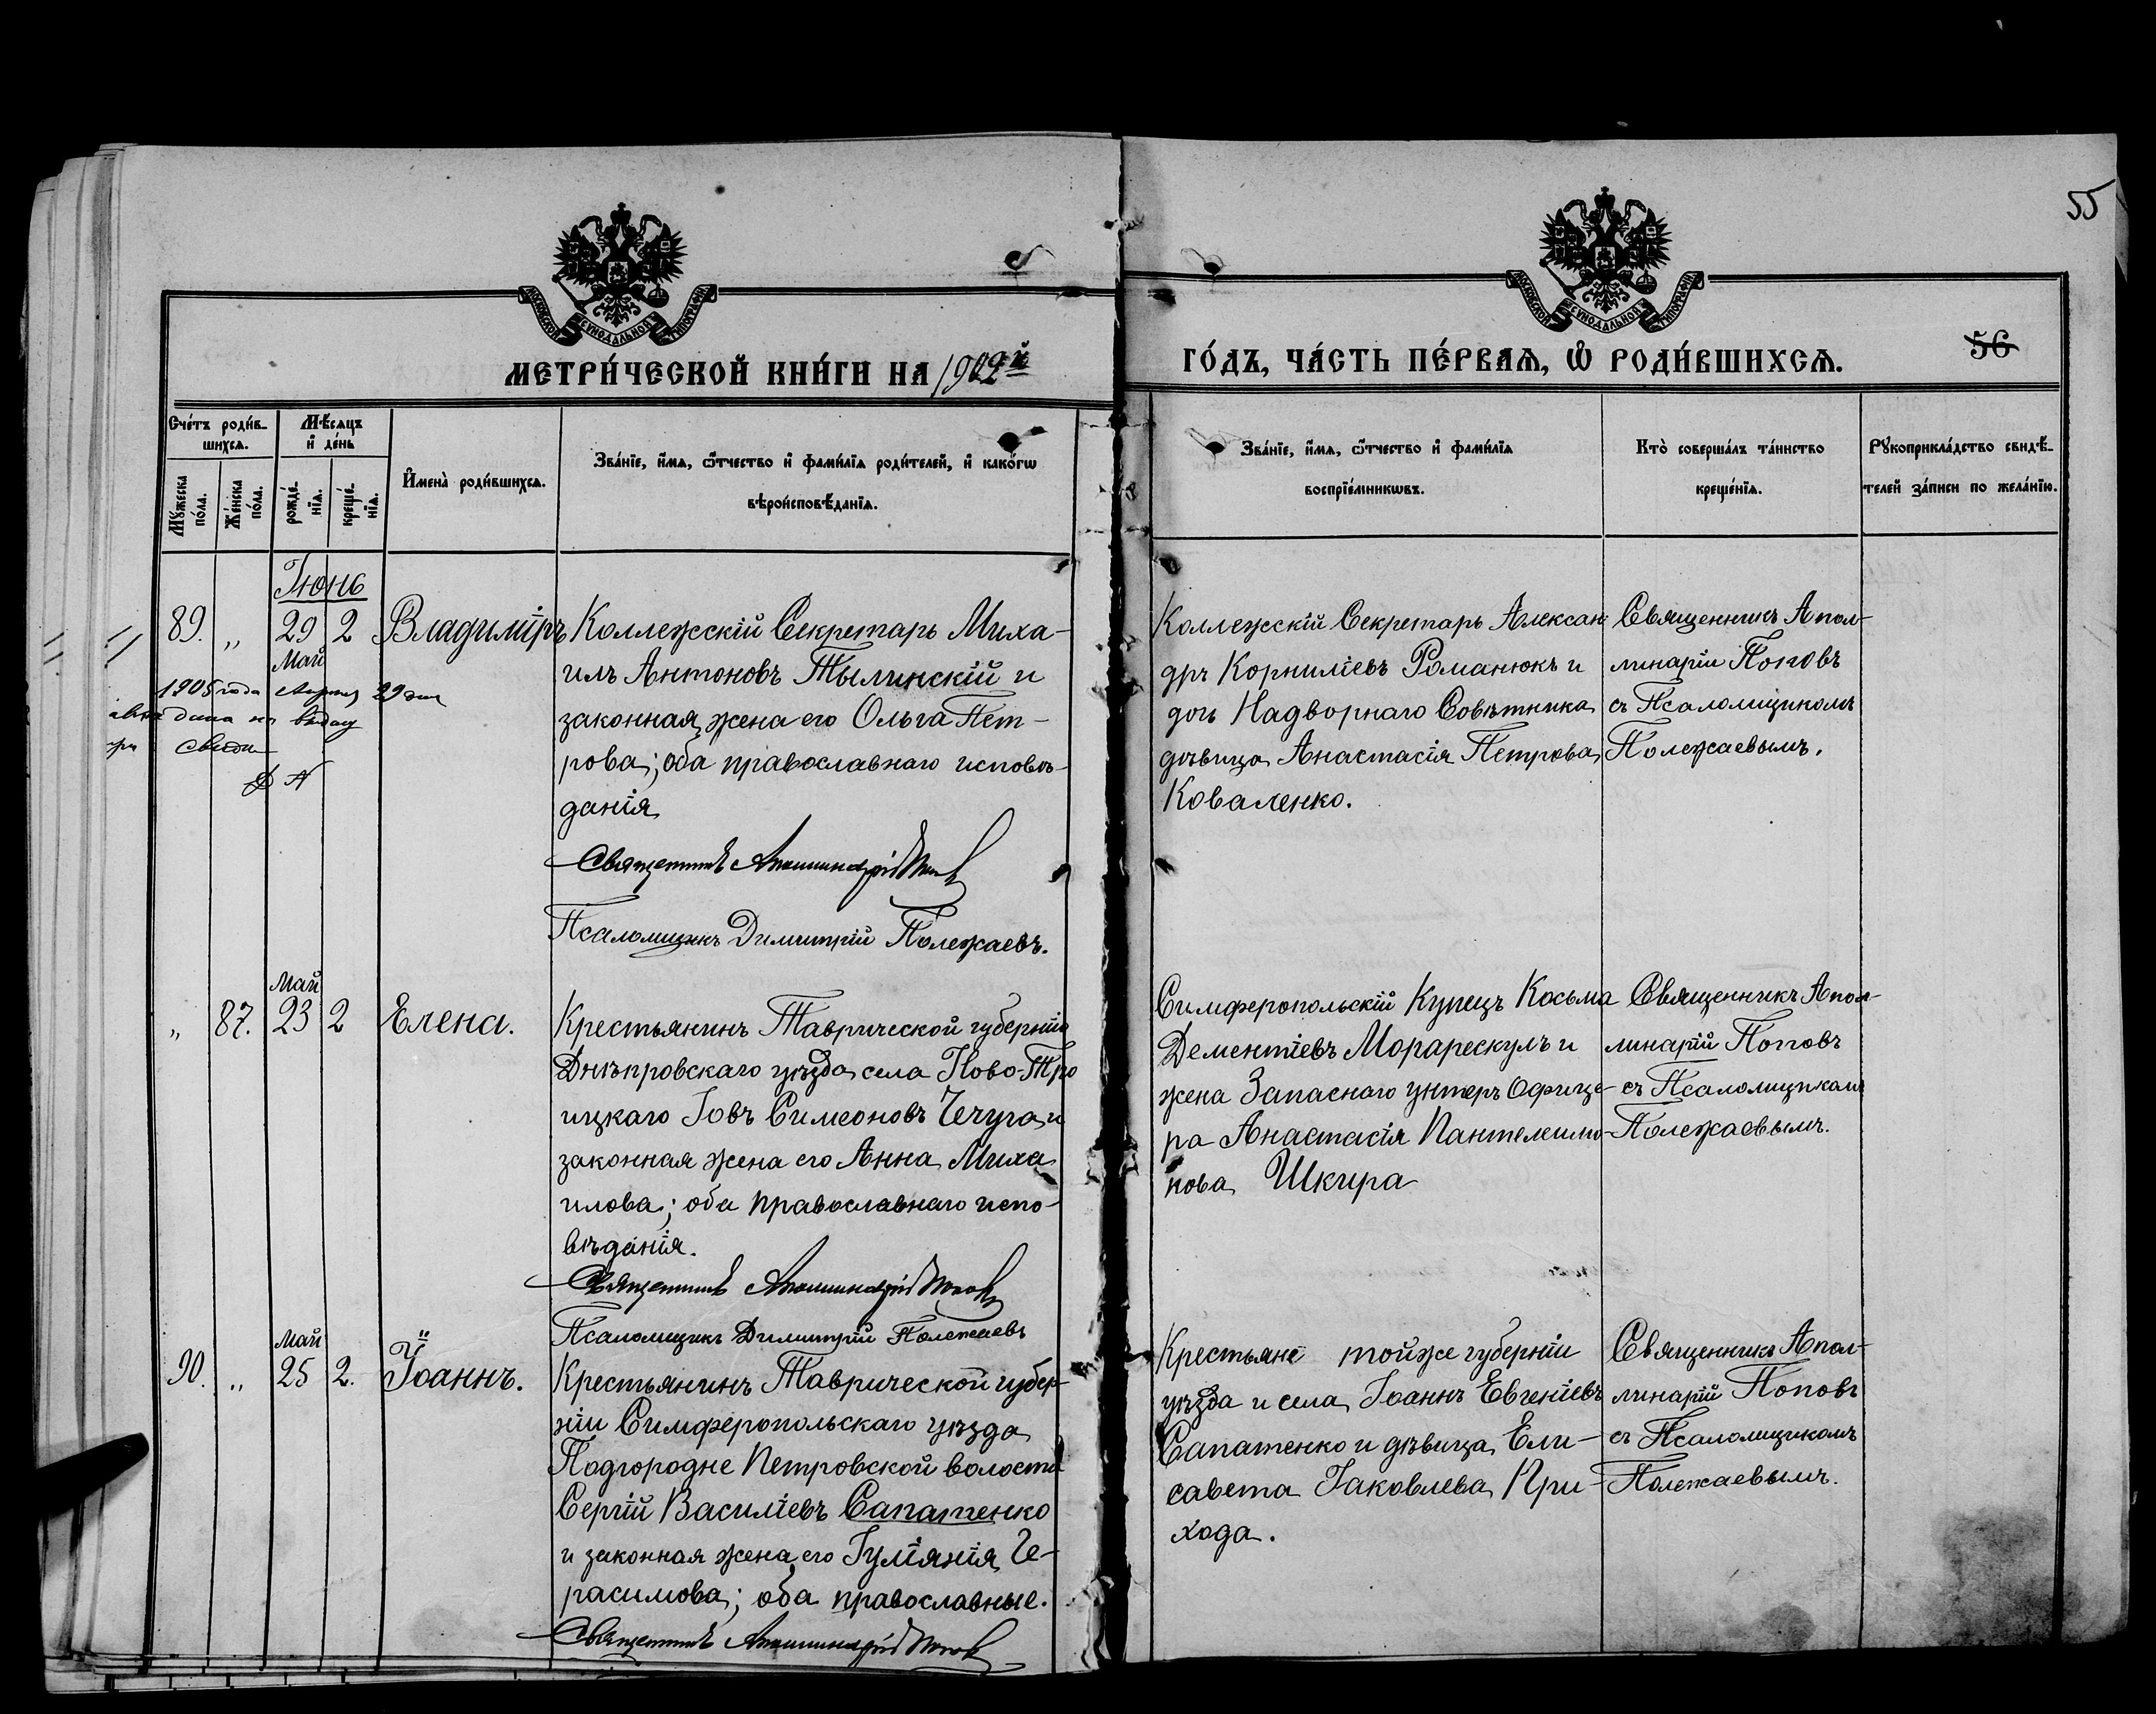 55
МОСКОВСКОЙ СѴНОДАЛЬНОЙ ТИПОГРАФІИ
МОСКОВСКОЙ СѴНОДАЛЬНОЙ ТИПОГРАФІИ
56
МЕТРИ́ЧЕСКОЙ КНИ́ГИ НА 1902й
ГО́ДЪ, ЧА́СТЬ ПЕ́РВАѦ, Ѡ РОДИ́ВШИХСѦ.
Сче́тъ роди́в-
шихсѧ.
Мꙋ́жеска
по́ла.
Же́нска
по́ла.
Мѣ́сѧцъ
и҆ де́нь
рожде́-
нїѧ.
креще́-
нїѧ.
И҆мена̀ роди́вшихсѧ.
Зва́нїе, и҆́мѧ, ѻ҆́тчество и҆ фами́лїѧ роди́телей, и҆ како́гѡ
вѣроисповѣ́данїѧ.
Зва́нїе, и҆́мѧ, ѻ҆́тчество и҆ фами́лїѧ
воспрїе́мникѡвъ.
Кто̀ соверша́лъ та́инство
креще́нїѧ.
Рꙋкоприкла́дство свидѣ́-
телей за́писи по жела́нїю.
Іюнь
89. „ 29 2 Владиміръ
Май
1905 года Апрѣля 29 дня
дана въ выдач
свиди
Коллежскій Секретарь Миха-
илъ Антоновъ Тылинскій и
законная жена его Ольга Пет-
рова; оба православнаго исповѣ-
данія
Священникъ Аполлинарій Поповъ
Псаломщикъ Димитрій Полежаевъ.
Коллежскій Секретарь Алексан-
дръ Корниліевъ Романюкъ и
дочь Надворнаго Совѣтника
дѣвица Анастасія Петрова
Коваленко.
Священникъ Апол-
линарій Поповъ
съ Псаломщикомъ
Полежаевымъ.
Май
„ 87. 23 2 Елена.
Крестьянинъ Таврической губерніи
Днѣпровскаго уѣзда села Ново-Тро
ицкаго Іовъ Симеоновъ Чечуга и
законная жена его Анна Миха
илова; оба православнаго испо-
вѣданія.
Священникъ Аполлинарій Поповъ
Псаломщикъ Димитрій Полежаевъ
Симферопольскій Купецъ Косьма
Дементіевъ Морарескулъ и
жена Запаснаго унтеръ Офице-
ра Анастасія Пантелеимо-
нова Шкира
Священникъ Апол-
линарій Поповъ
съ Псаломщикомъ
Полежаевымъ.
Май
90. „ 25 2. Іоаннъ.
Крестьянинъ Таврической губер-
ніи Симферопольскаго уѣзда
Подгородне Петровской волости
Сергій Василіевъ Сапатенко
и законная жена его Іуліанія Ге-
расимова; оба православные.
Священникъ Аполлинарій Поповъ
Крестьяне тойже губерніи
уѣзда и села Іоаннъ Евгеніевъ
Сапатенко и дѣвица Ели-
савета Іаковлева При-
хода.
Священникъ Апол-
линарій Поповъ
съ Псаломщикомъ
Полежаевымъ.